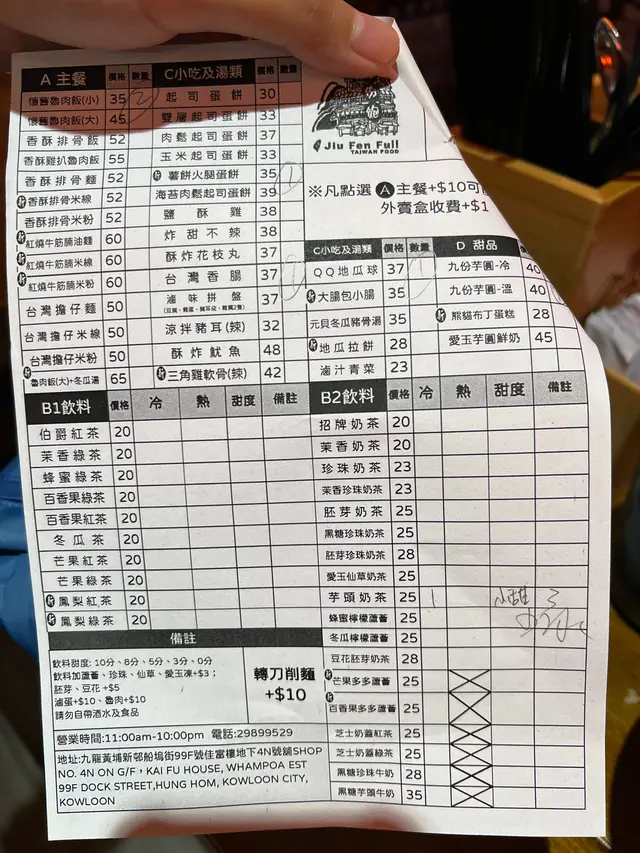 A 主餐 價格 數量
懷舊魯肉飯(小) 35 2
懷舊魯肉飯(大) 45
香酥排骨飯 52
香酥雞扒魯肉飯 55
香酥排骨麵 52
新 香酥排骨米線 52
香酥排骨米粉 52
新 紅燒牛筋腩油麵 60
新 紅燒牛筋腩米線 60
新 紅燒牛筋腩米粉 60
台灣擔仔麵 50
台灣擔仔米線 50
台灣擔仔米粉 50
新 魯肉飯(大)+冬瓜湯 65
C小吃及湯類 價格 數量
起司蛋餅 30
雙層起司蛋餅 33
肉鬆起司蛋餅 37
玉米起司蛋餅 33
新 薯餅火腿蛋餅 35 1
海苔肉鬆起司蛋餅 39
鹽酥雞 38
炸甜不辣 38
酥炸花枝丸 37
台灣香腸 37
滷味拼盤 37
涼拌豬耳(辣) 32
酥炸魷魚 48
新 三角雞軟骨(辣) 42
Jiu Fen Full
TAIWAN FOOD
※凡點選A主餐+$10可
外賣盒收費+$1
C小吃及湯類 價格 數量
QQ地瓜球 37 1
新 大腸包小腸 35
元貝冬瓜豬骨湯 35
新 地瓜拉餅 28
滷汁青菜 23
D 甜品 價格
九份芋圓-冷 40
九份芋圓-溫 40
新 熊貓布丁蛋糕 28
愛玉芋圓鮮奶 45
B1飲料 價格 冷 熱 甜度 備註
伯爵紅茶 20
茉香綠茶 20
蜂蜜綠茶 20
百香果綠茶 20
百香果紅茶 20
冬瓜茶 20
芒果紅茶 20
芒果綠茶 20
新 鳳梨紅茶 20
新 鳳梨綠茶 20
B2飲料 價格 冷 熱 甜度 備註
招牌奶茶 20
茉香奶茶 20
珍珠奶茶 23
茉香珍珠奶茶 23
胚芽奶茶 25
黑糖珍珠奶茶 25
胚芽珍珠奶茶 28
愛玉仙草奶茶 25
芋頭奶茶 25 1
蜂蜜檸檬蘆薈 25
冬瓜檸檬蘆薈 25
豆花胚芽奶茶 28
新 芒果多多蘆薈 25
新 百香果多多蘆薈 25
芝士奶蓋紅茶 25
芝士奶蓋綠茶 25
黑糖珍珠牛奶 28
黑糖芋頭牛奶 35
備註
飲料甜度: 10分、8分、5分、3分、0分
飲料加蘆薈、珍珠、仙草、愛玉凍+$3；
胚芽、豆花 +$5
滷蛋+$10、魯肉+$10
請勿自帶酒水及食品
轉刀削麵
+$10
營業時間:11:00am-10:00pm 電話:29899529
地址:九龍黃埔新邨船塢街99F號佳富樓地下4N號舖SHOP
NO. 4N ON G/F，KAI FU HOUSE, WHAMPOA EST
99F DOCK STREET,HUNG HOM, KOWLOON CITY,
KOWLOON